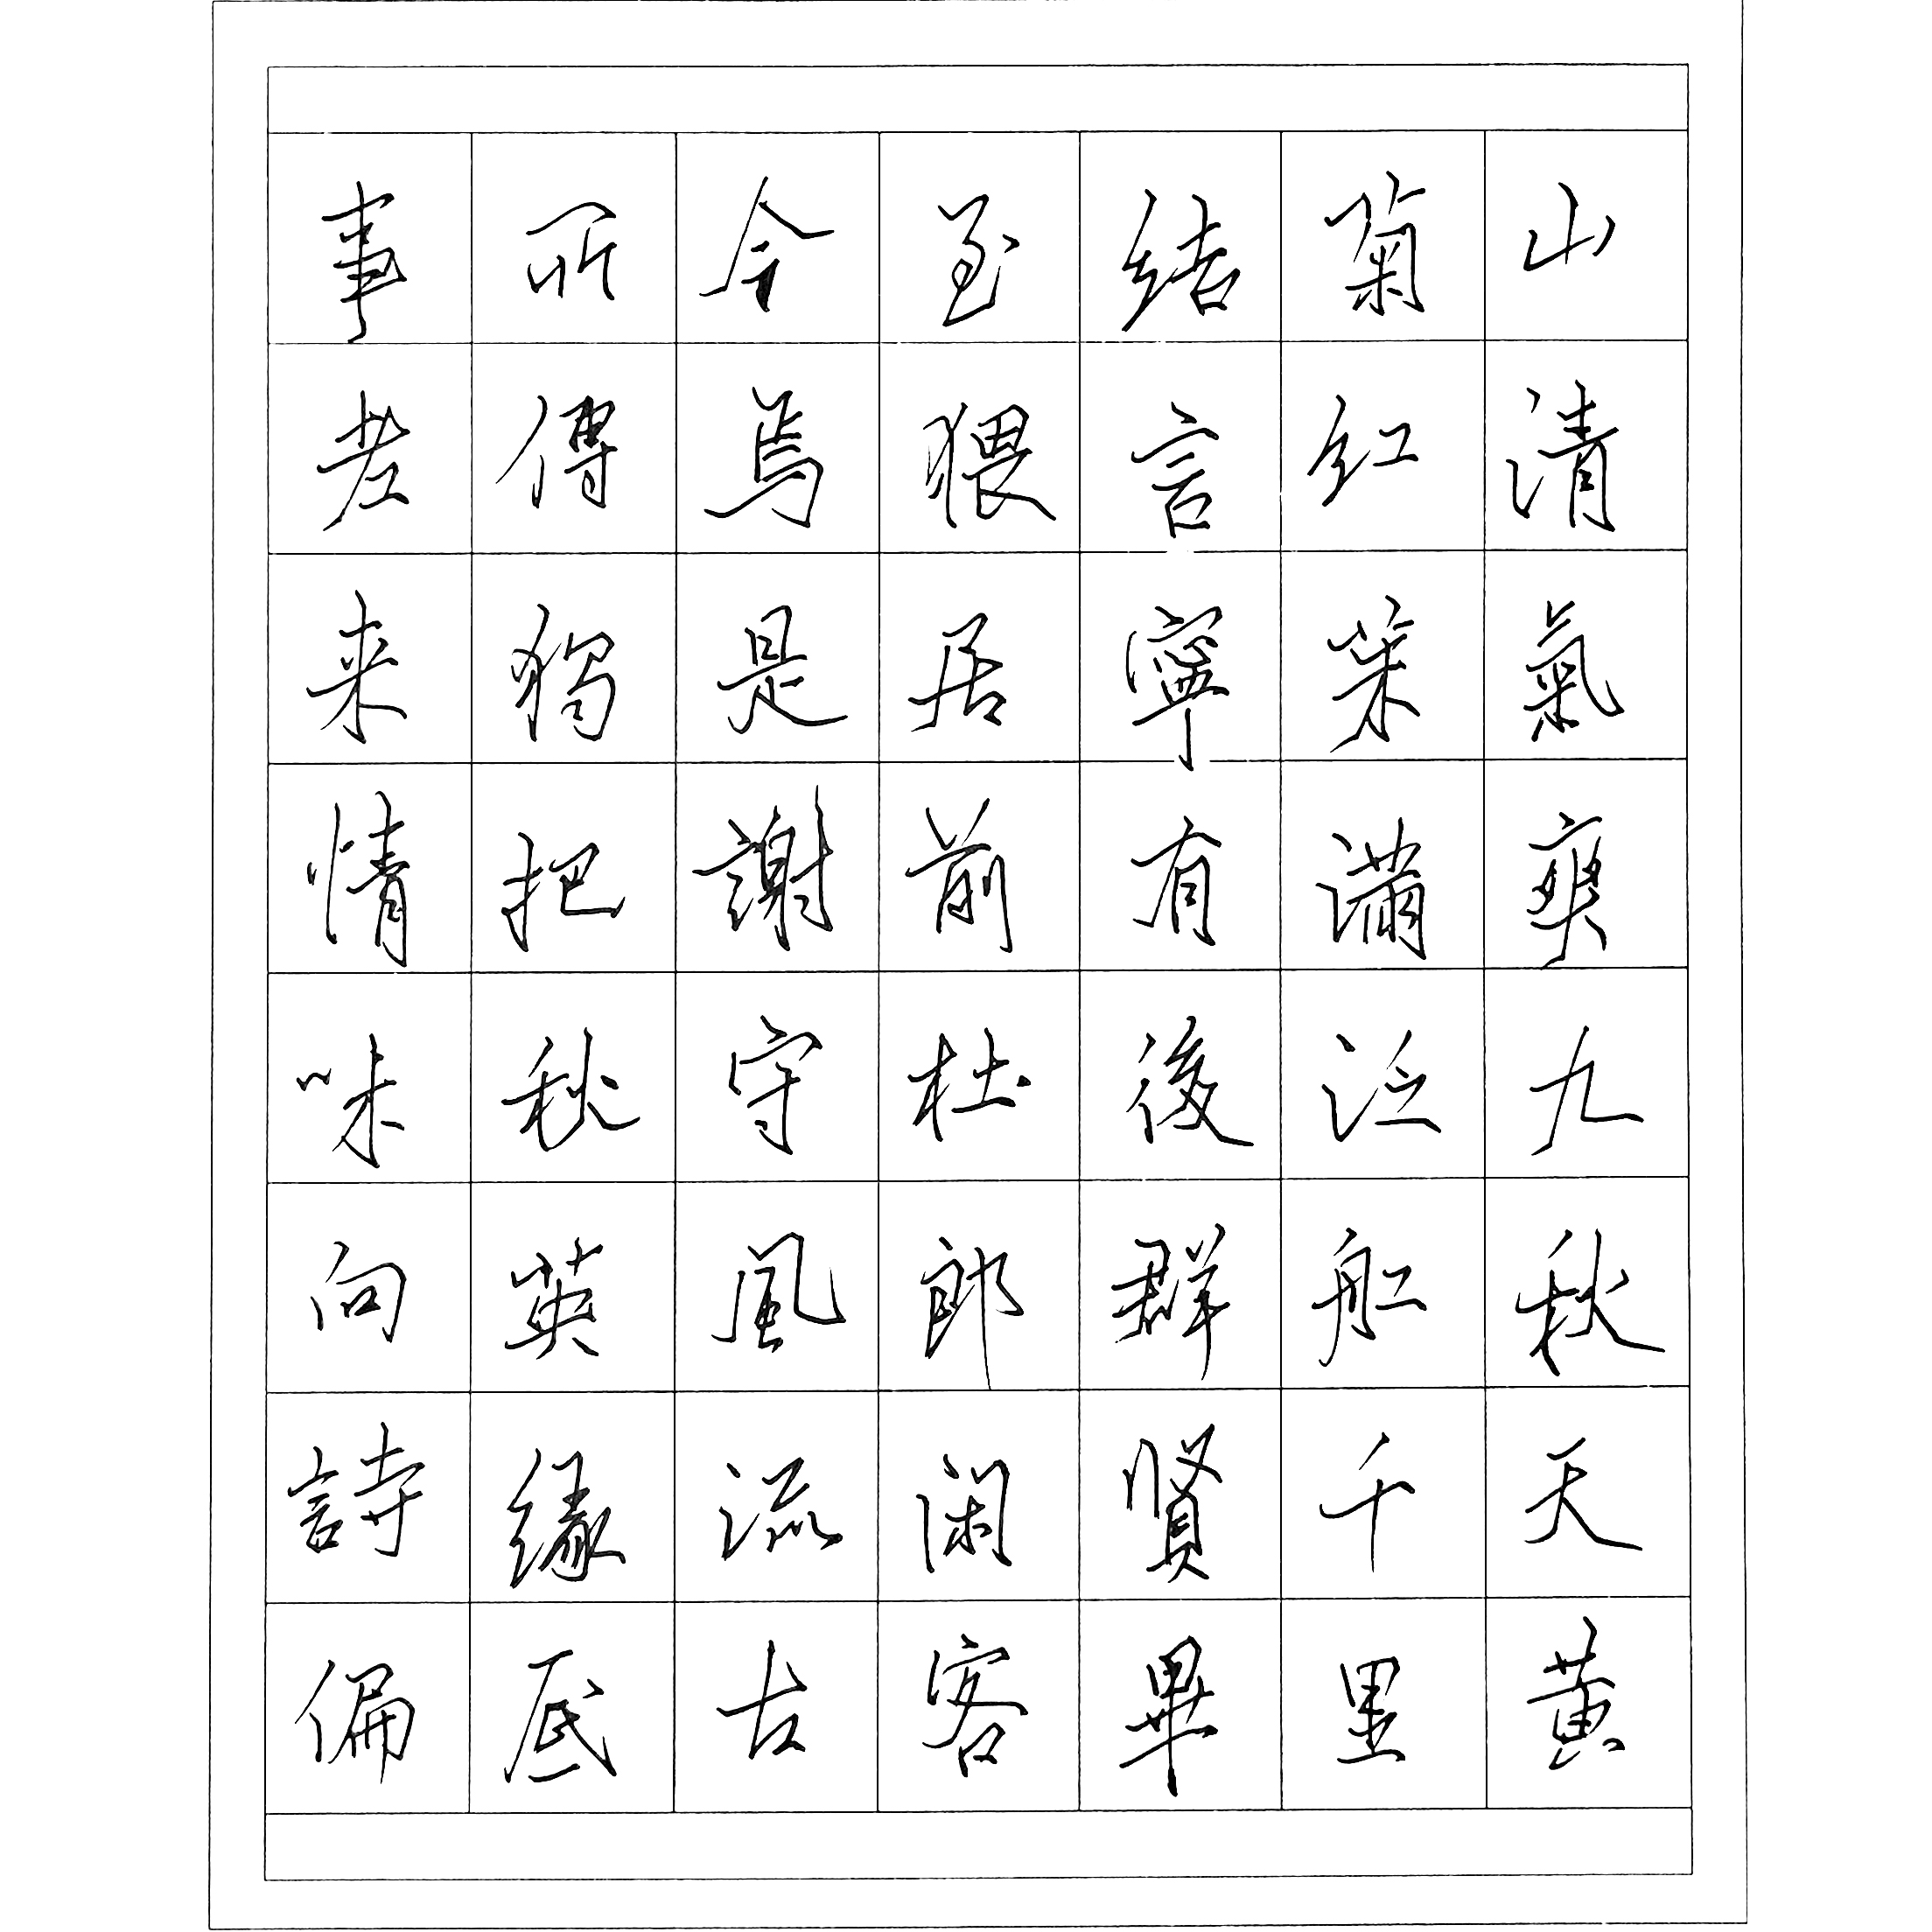 山清氣爽九秋天黃
菊紅茱滿泛舡千里
結言寧有後群賢畢
至猥居前杜郎閑客
今焉是謝守風流古
所傳獨把秋英緣底
事老来情味向詩偏